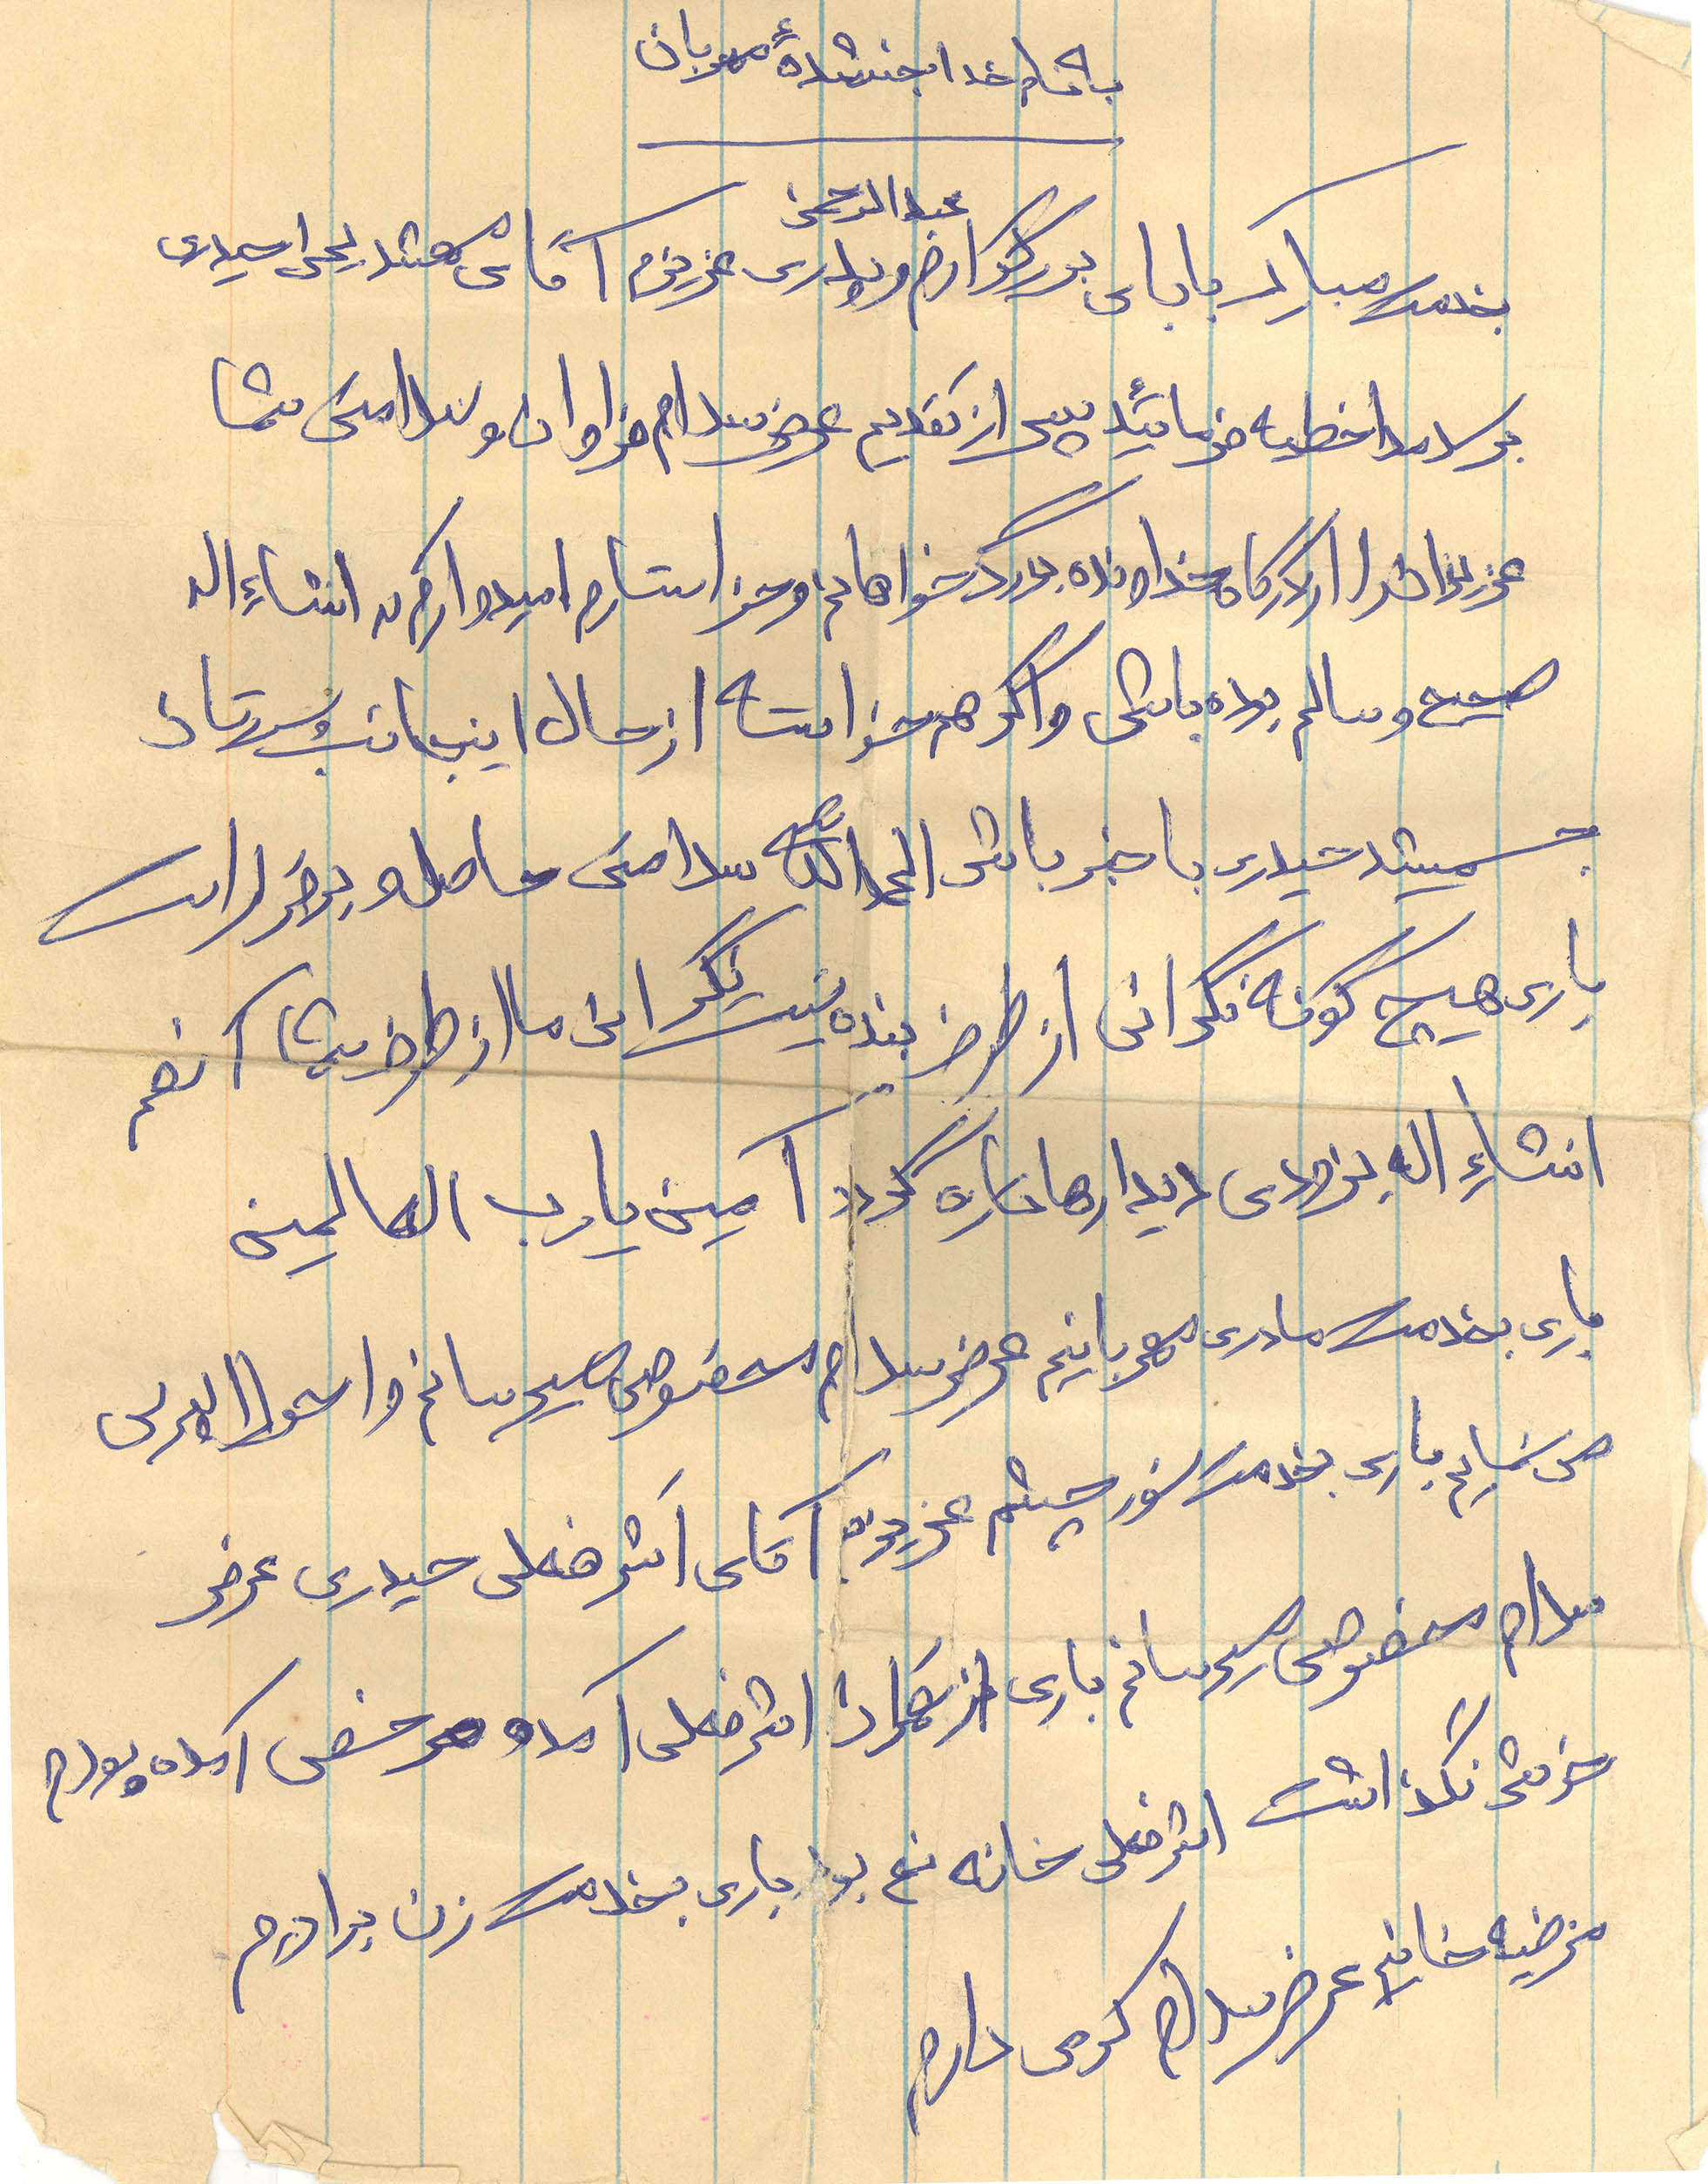 به نام خدا بخشندهٔ مهربان
عبدالرحمن
بخدمت مبارک بابای بزرگوارم و پدری عزیزم آقای مشتد یحیی حیدری
برسد ملاحظیه فرمائید پس از تقدیم عرض سلام فراوان و سلامتی شما
عزیزان را از درگاه خداونده بزرگ خواهانم و خواستارم امیدوارم که انشاءاله
صحیح و سالم بوده باشی و اگر هم خواسته از حال اینجانب وسرتان
جمشید حیدری باخبر باشی الحمدالله سلامتی حاصل و برقرار است
باری هیچ گونه نگرانی از طرف بنده نیست نگرانی ما از طرف شما آنهم
انشاءاله بزودی دیدارها تازه گردد آمین یارب العالمین
باری بخدمت مادری مهربانیم عرض سلام مخصوص میرسانم و احوالپرسی
می نمایم باری بخدمت نور چشم عزیزم آقای اشرفعلی حیدری عرض
سلام مخصوص میرسانم باری از تهران اشرفعلی آمد و مرخصی آمده بودم
خوش نگذاشت اشرفعلی خانه نم بود باری بخدمت زن برادرم
مرضیه خانیم عرض سلام گرمی دارم